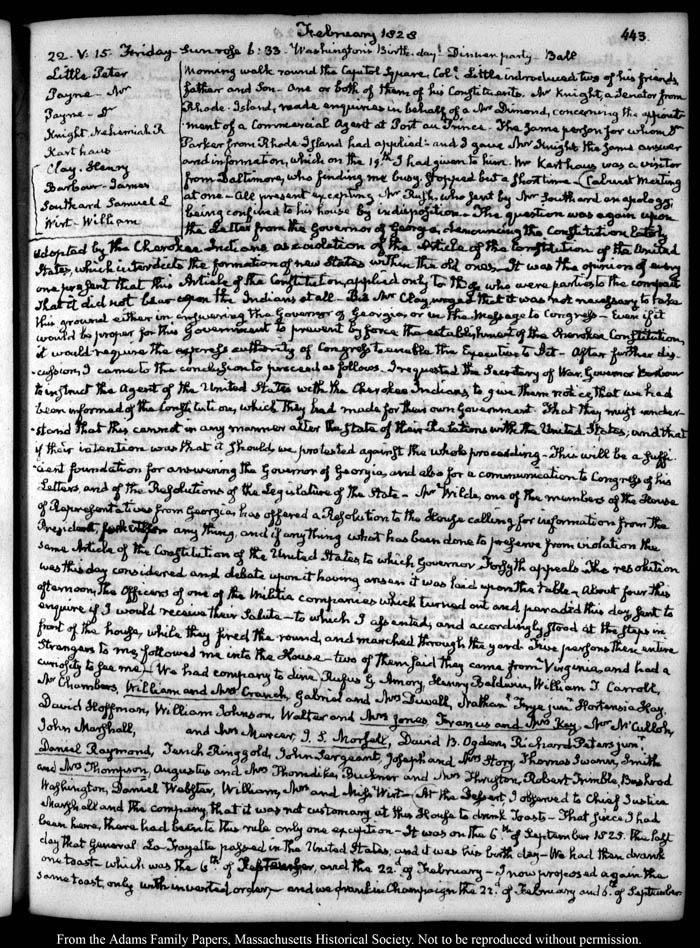 February 1828
443
22. V:15. Friday. Sun rose 6:33. Washington's Birth-day. Dinner party. Ball
Little Peter
Payne - Mr
Payne - Dr
Knight Nehemiah R
Karthaus
Clay. Henry
Barbour. James
Southard Samuel L
Wirt. William
Morning walk round the Capitol Square. Col. Little introduced two of his friends,
father and Son. One or both of them of his Constituents. Mr Knight, a Senator from
Rhode-Island, made enquiries in behalf of a Mr Dimond, concerning the appoint-
ment of a Commercial Agent at Port au Prince. The same person for whom Dr
Parker from Rhode Island had applied: and I gave Mr Knight the same answer
and information, which on the 19th I had given to him. Mr Karthaus was a visitor
from Baltimore, who finding me busy, stopped but a short time. Cabinet Meeting
at one. All present excepting Mr Rush, who sent by Mr Southard an apology;
being confined to his house by indisposition. The question was again upon
the Letter from the Governor of Georgia, denouncing the Constitution lately
adopted by the Cherokee Indians as a violation of the Article of the Constitution of the United
States, which interdicts the formation of new States within the old ones. It was the opinion of every
one present that this Article of the Constitution, applied only to those who were parties to the compact
That it did not bear upon the Indians at all. But Mr Clay urged that it was not necessary to take
this ground either in answering the Governor of Georgia, or in the Message to Congress. Even if it
would be proper for this Government to prevent by force the establishment of the Cherokee Constitution,
it would require the express authority of Congress to enable the Executive to act. After further dis-
cussion, I came to the conclusion to proceed as follows. I requested the Secretary of War, Governor Barbour
to instruct the Agent of the United States with the Cherokee Indians, to give them notice, that we had
been informed of the Constitution, which they had made for their own Government. That they must under-
stand that this cannot in any manner alter the State of their Relations with the United States; and that
if their intention was that it should, we protested against the whole proceeding. This will be a suffi-
cient foundation for answering the Governor of Georgia, and also for a communication to Congress of his
Letters, and of the Resolutions of the Legislature of the State. Mr Wilde, one of the members of the House
of Representatives from Georgia has offered a Resolution to the House calling for information from the
President, whether any thing, and if any thing what has been done to preserve from violation the
same Article of the Constitution of the United States, to which Governor Forsyth appeals. The resolution
was this day considered and debate upon it having arisen it was laid upon the table. About four this
afternoon, the Officers of one of the Militia companies which turned out and paraded this day, sent to
enquire if I would receive their Salute. to which I assented, and accordingly stood at the steps in
front of the house, while they fired the round, and marched through the yard. Five persons then entire
Strangers to me, followed me into the House. two of them said they came from Virginia, and had a
curiosity to see me. We had company to dine, Rufus G Amory, Henry Baldwin, William T. Carroll,
Mr Chambers, William and Mrs Cranch, Gabriel and Mrs Duvall, Nathan Frye junr Hortensia Hay,
David Hoffman, William Johnson, Walter and Mrs Jones, Francis and Mrs Key, Mr McCulloh,
John Marshall, and Mrs Mercer, J. S. Morsall, David B. Ogden, Richard Peters junr,
Daniel Raymond, Tench Ringgold, John Sergeant, Joseph and Mrs Story, Thomas Swann, Smith
and Mrs Thompson, Augustus and Mrs Thorndike, Buckner and Mrs Thruston, Robert Trimble, Bushrod
Washington, Daniel Webster, William, Mrs and Miss Wirt. At the Dessert, I observed to Chief Justice
Marshall and the company, that it was not customary at this House to drink Toasts. That since I had
been here, there had been to this rule only one exception. It was on the 6th of September 1825. the last
day that General La Fayette passed in the United States, and it was his birth day. We had then drank
one toast which was the 6th of September, and the 22d of February. I now proposed again the
same toast, only with inverted order, and we drank in Champaign the 22d of February and 6th of September.
From the Adams Family Papers, Massachusetts Historical Society. Not to be reproduced without permission.